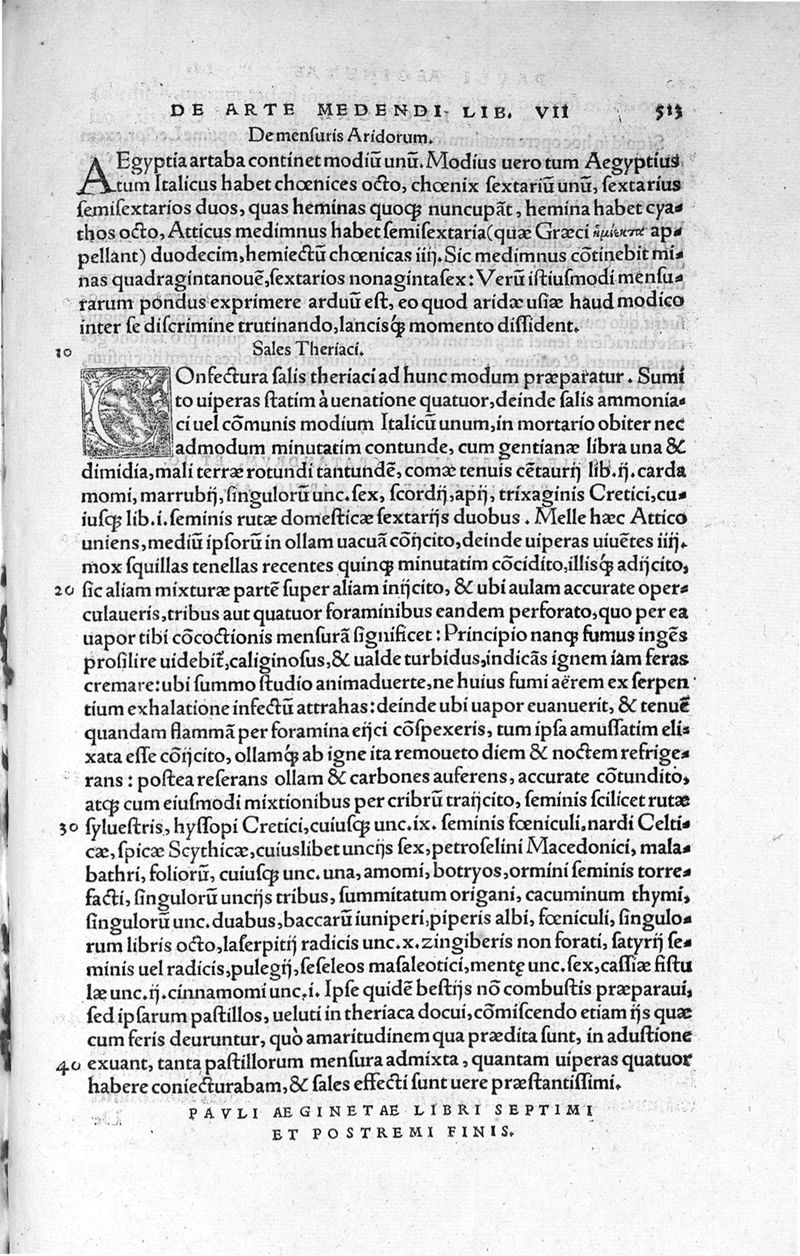 DE ARTE MEDENDI LIB. VII 513
De mensuris Aridorum.
AEgyptia artaba continet modiũ unũ. Modius uero tum Aegyptius
tum Italicus habet chœnices octo, chœnix sextariũ unũ, sextarius
semisextarios duos, quas heminas quoqꝫ nuncupãt, hemina habet cya-
thos octo, Atticus medimnus habet semisextaria (quæ Græci ἡμίεκτα ap-
pellant) duodecim, hemiectũ chœnicas iiij. Sic medimnus cõtinebit mi-
nas quadragintanouẽ, sextarios nonagintasex: Verũ istiusmodi mensu-
rarum pondus exprimere arduũ est, eo quod aridæ usiæ haud modico
inter se discrimine trutinando, lancisqꝫ momento dissident.
10 Sales Theriaci.
COnfectura salis theriaci ad hunc modum præparatur. Sumi
to uiperas statim à uenatione quatuor, deinde salis ammonia-
ci uel cõmunis modium Italicũ unum, in mortario obiter nec
admodum minutatim contunde, cum gentianæ libra una &
dimidia, mali terræ rotundi tantundẽ, comæ tenuis cẽtaurij lib. ij. carda
momi, marrubij, singulorũ unc. sex, scordij, apij, trixaginis Cretici, cu-
iusqꝫ lib. i. seminis rutæ domesticæ sextarijs duobus. Melle hæc Attico
uniens, mediũ ipsorũ in ollam uacuã cõijcito, deinde uiperas uiuẽtes iiij.
mox squillas tenellas recentes quinqꝫ minutatim cõcidito, illisqꝫ adijcito,
20 sic aliam mixturæ partẽ super aliam inijcito, & ubi aulam accurate oper-
culaueris, tribus aut quatuor foraminibus eandem perforato, quo per ea
uapor tibi cõcoctionis mensurã significet: Principio nanqꝫ fumus ingẽs
prosilire uidebit̃, caliginosus, & ualde turbidus, indicãs ignem iam feras
cremare: ubi summo studio animaduerte, ne huius fumi aërem ex serpen
tium exhalatione infectũ attrahas: deinde ubi uapor euanuerit, & tenuẽ
quandam flammã per foramina eijci cõspexeris, tum ipsa amussatim eli-
xata esse cõijcito, ollamqꝫ ab igne ita remoueto diem & noctem refrige-
rans: postea reserans ollam & carbones auferens, accurate cõtundito,
atqꝫ cum eiusmodi mixtionibus per cribrũ traijcito, seminis scilicet rutæ
30 syluestris, hyssopi Cretici, cuiusqꝫ unc. ix. seminis fœniculi, nardi Celti-
cæ, spicæ Scythicæ, cuiuslibet uncijs sex, petroselini Macedonici, mala-
bathri, foliorũ, cuiusqꝫ unc. una, amomi, botryos, ormini seminis torre-
facti, singulorũ uncijs tribus, summitatum origani, cacuminum thymi,
singulorũ unc. duabus, baccarũ iuniperi, piperis albi, fœniculi, singulo-
rum libris octo, laserpitij radicis unc. x. zingiberis non forati, satyrij se-
minis uel radicis, pulegij, seseleos masaleotici, mentę unc. sex, cassiæ fistu
læ unc. ij. cinnamomi unc. i. Ipse quidẽ bestijs nõ combustis præparaui,
sed ipsarum pastillos, ueluti in theriaca docui, cõmiscendo etiam ijs quæ
cum feris deuruntur, quò amaritudinem qua prædita sunt, in adustione
40 exuant, tanta pastillorum mensura admixta, quantam uiperas quatuor
habere coniecturabam, & sales effecti sunt uere præstantissimi.
PAVLI AEGINETAE LIBRI SEPTIMI
ET POSTREMI FINIS.